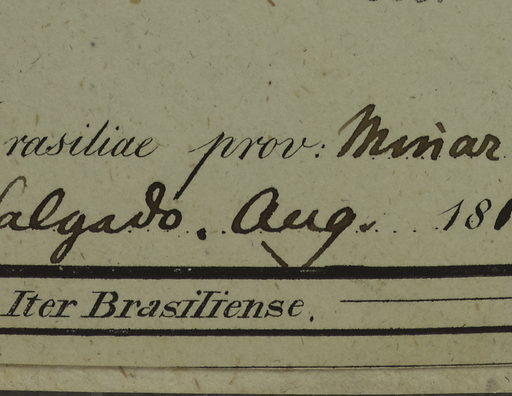 rasiliae prov: Minar
Salgado. Aug. 181
Iter Brasiliense.